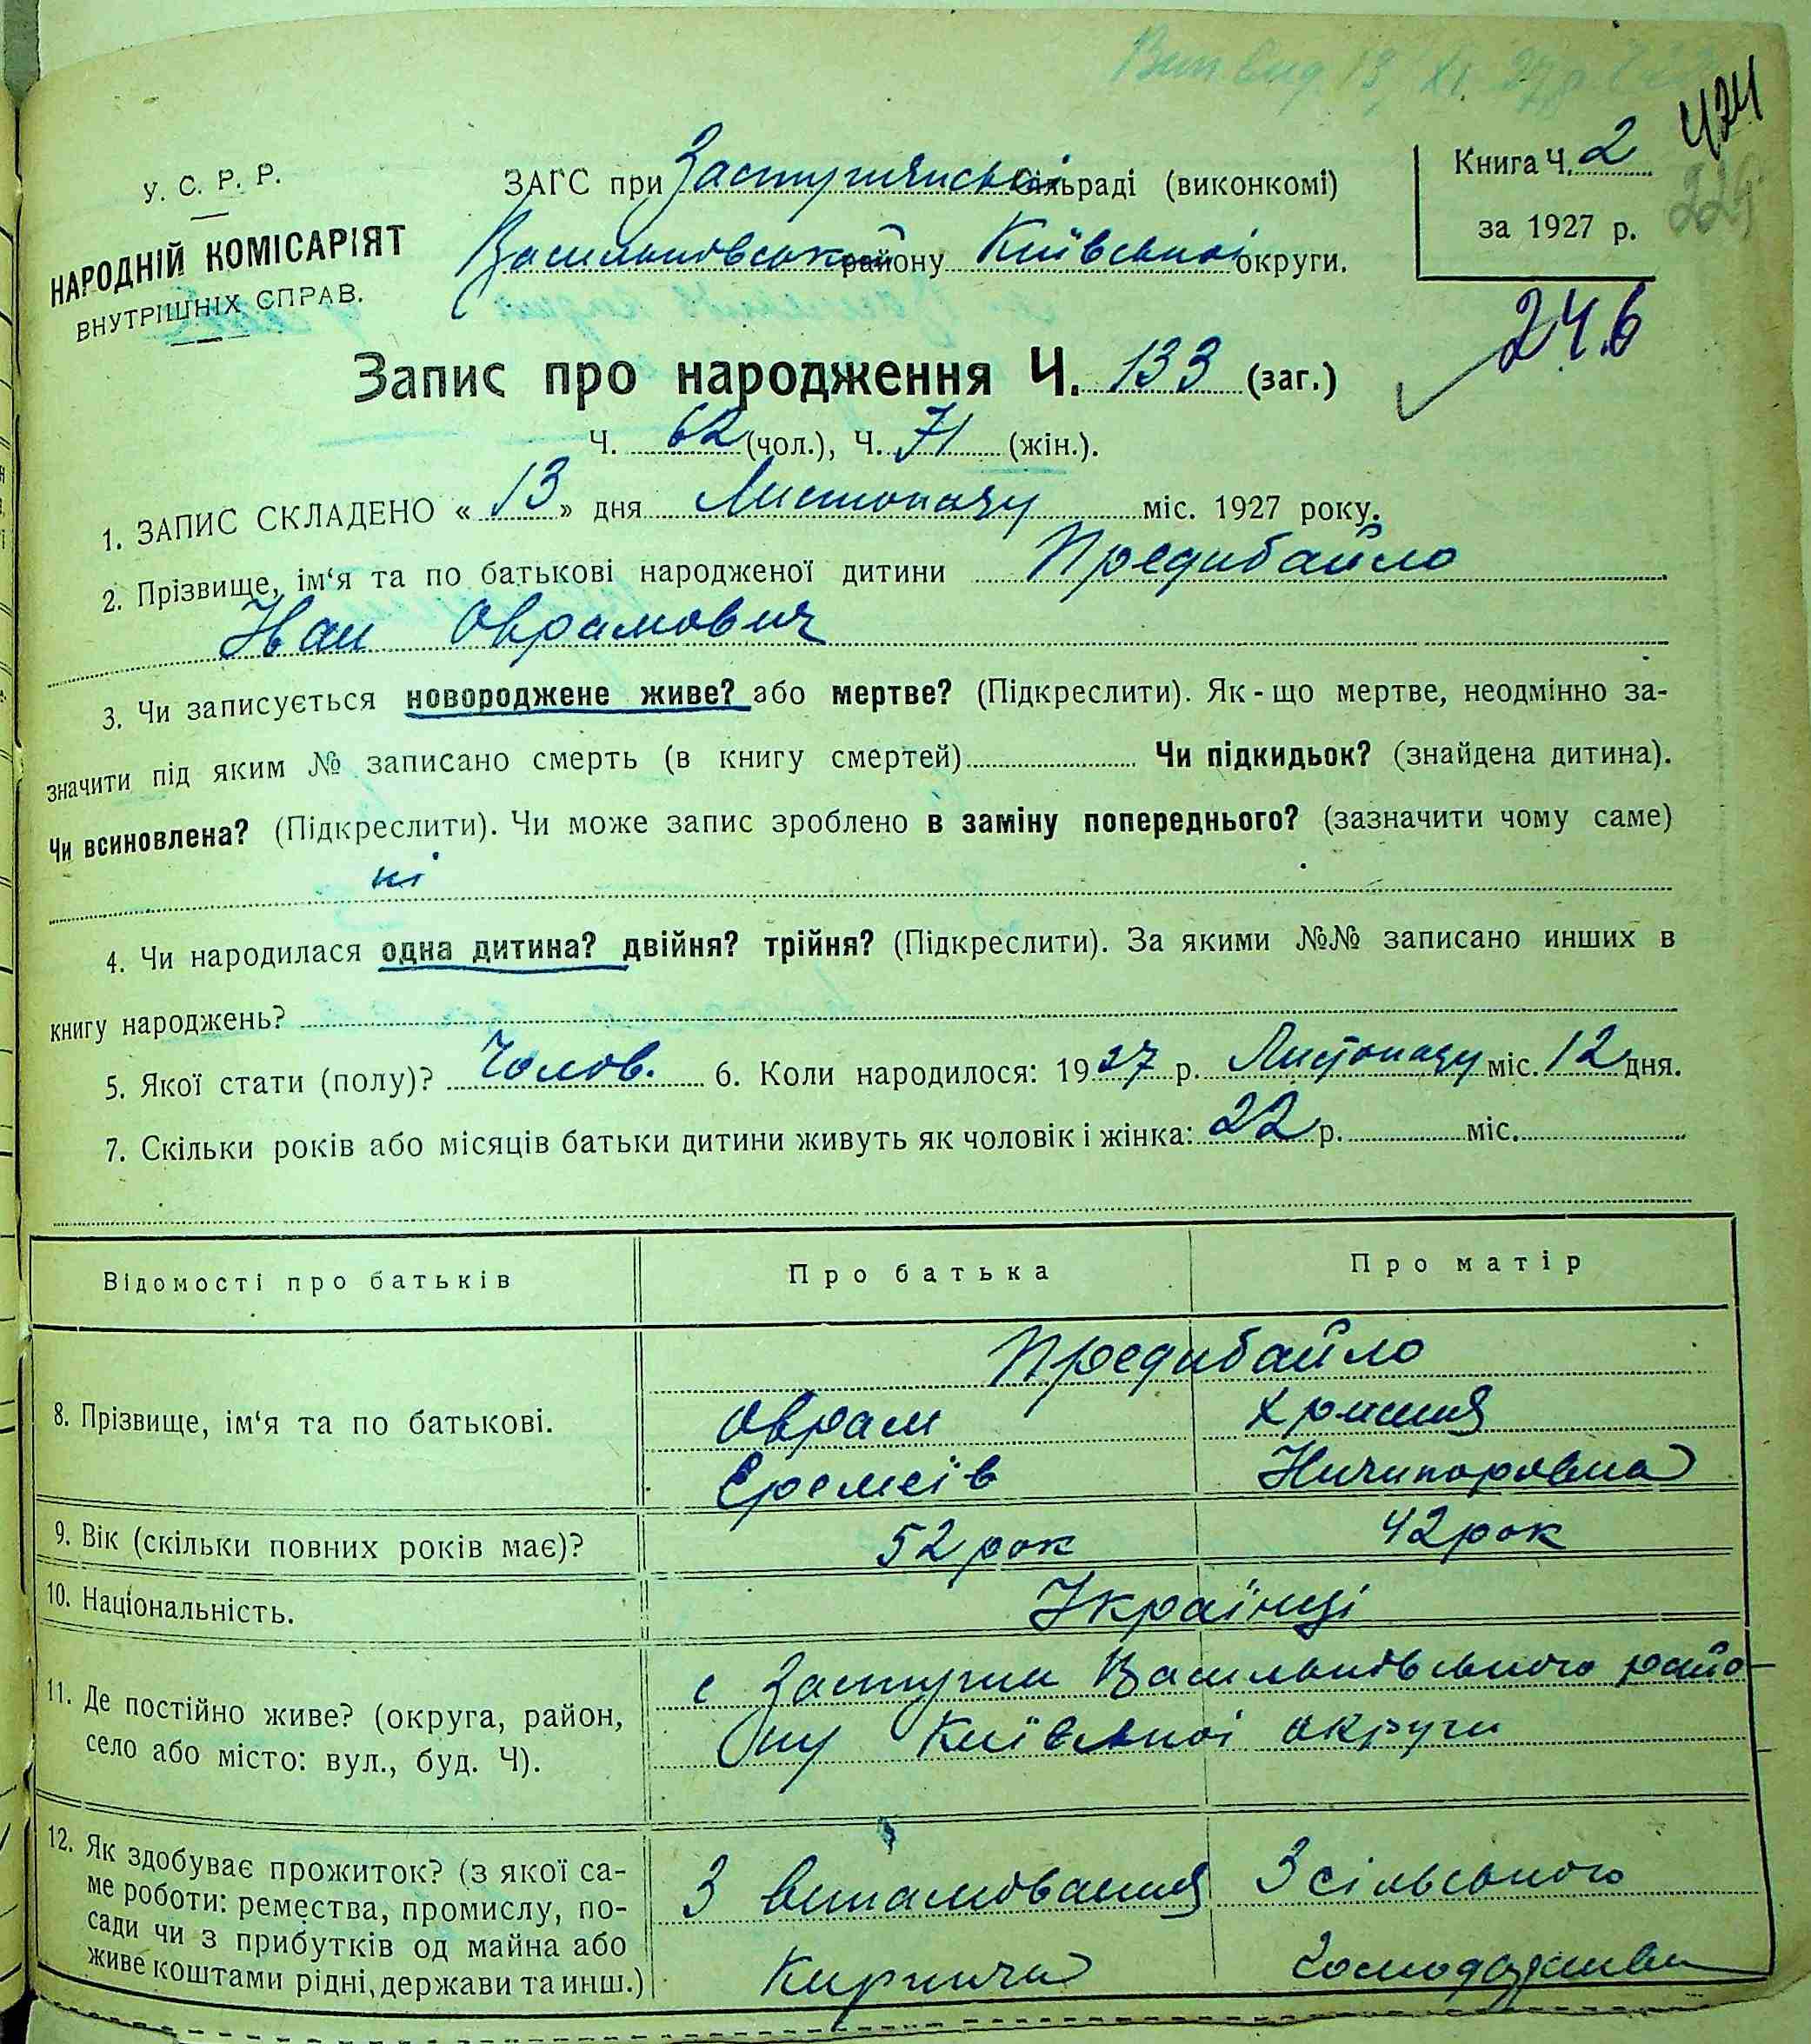 Вип. вид. 13/XI 27 р.
424
229
У. С. Р. Р.
НАРОДНІЙ КОМІСАРІЯТ
ВНУТРІШНІХ СПРАВ.
ЗАГС при Застугнянській сільраді (виконкомі)
Васильківського району Київської округи.
Книга Ч. 2
за 1927 р.
246
Запис про народження Ч. 133 (заг.)
Ч. 62 (чол.), Ч. 71 (жін.).
1. ЗАПИС СКЛАДЕНО « 13 » дня Листопаду міс. 1927 року.
2. Прізвище, ім‘я та по батькові народженої дитини Предибайло
Иван Оврамович
3. Чи записується новороджене живе? або мертве? (Підкреслити). Як-що мертве, неодмінно за-
значити під яким № записано смерть (в книгу смертей) Чи підкидьок? (знайдена дитина).
Чи всиновлена? (Підкреслити). Чи може запис зроблено в заміну попереднього? (зазначити чому саме)
ні
4. Чи народилася одна дитина? двійня? трійня? (Підкреслити). За якими №№ записано инших в
книгу народжень?
5. Якої стати (полу)? Чолов. 6. Коли народилося: 1927 р. Листопаду міс. 12 дня.
7. Скільки років або місяців батьки дитини живуть як чоловік і жінка: 22 р. міс.
Відомості про батьків Про батька Про матір
8. Прізвище, ім‘я та по батькові.
Предибайло
Оврам Христя
Еремеїв Ничипоровна
9. Вік (скільки повних років має)? 52 рок 42 рок
10. Національність. Українці
11. Де постійно живе? (округа, район,
село або місто: вул., буд. Ч).
с Застугни Васильківського райо-
ну Київської округи
12. Як здобуває прожиток? (з якої са-
ме роботи: ремества, промислу, по-
сади чи з прибутків од майна або
живе коштами рідні, держави та инш.)
З випалювання З сільського
Кирпича господарства